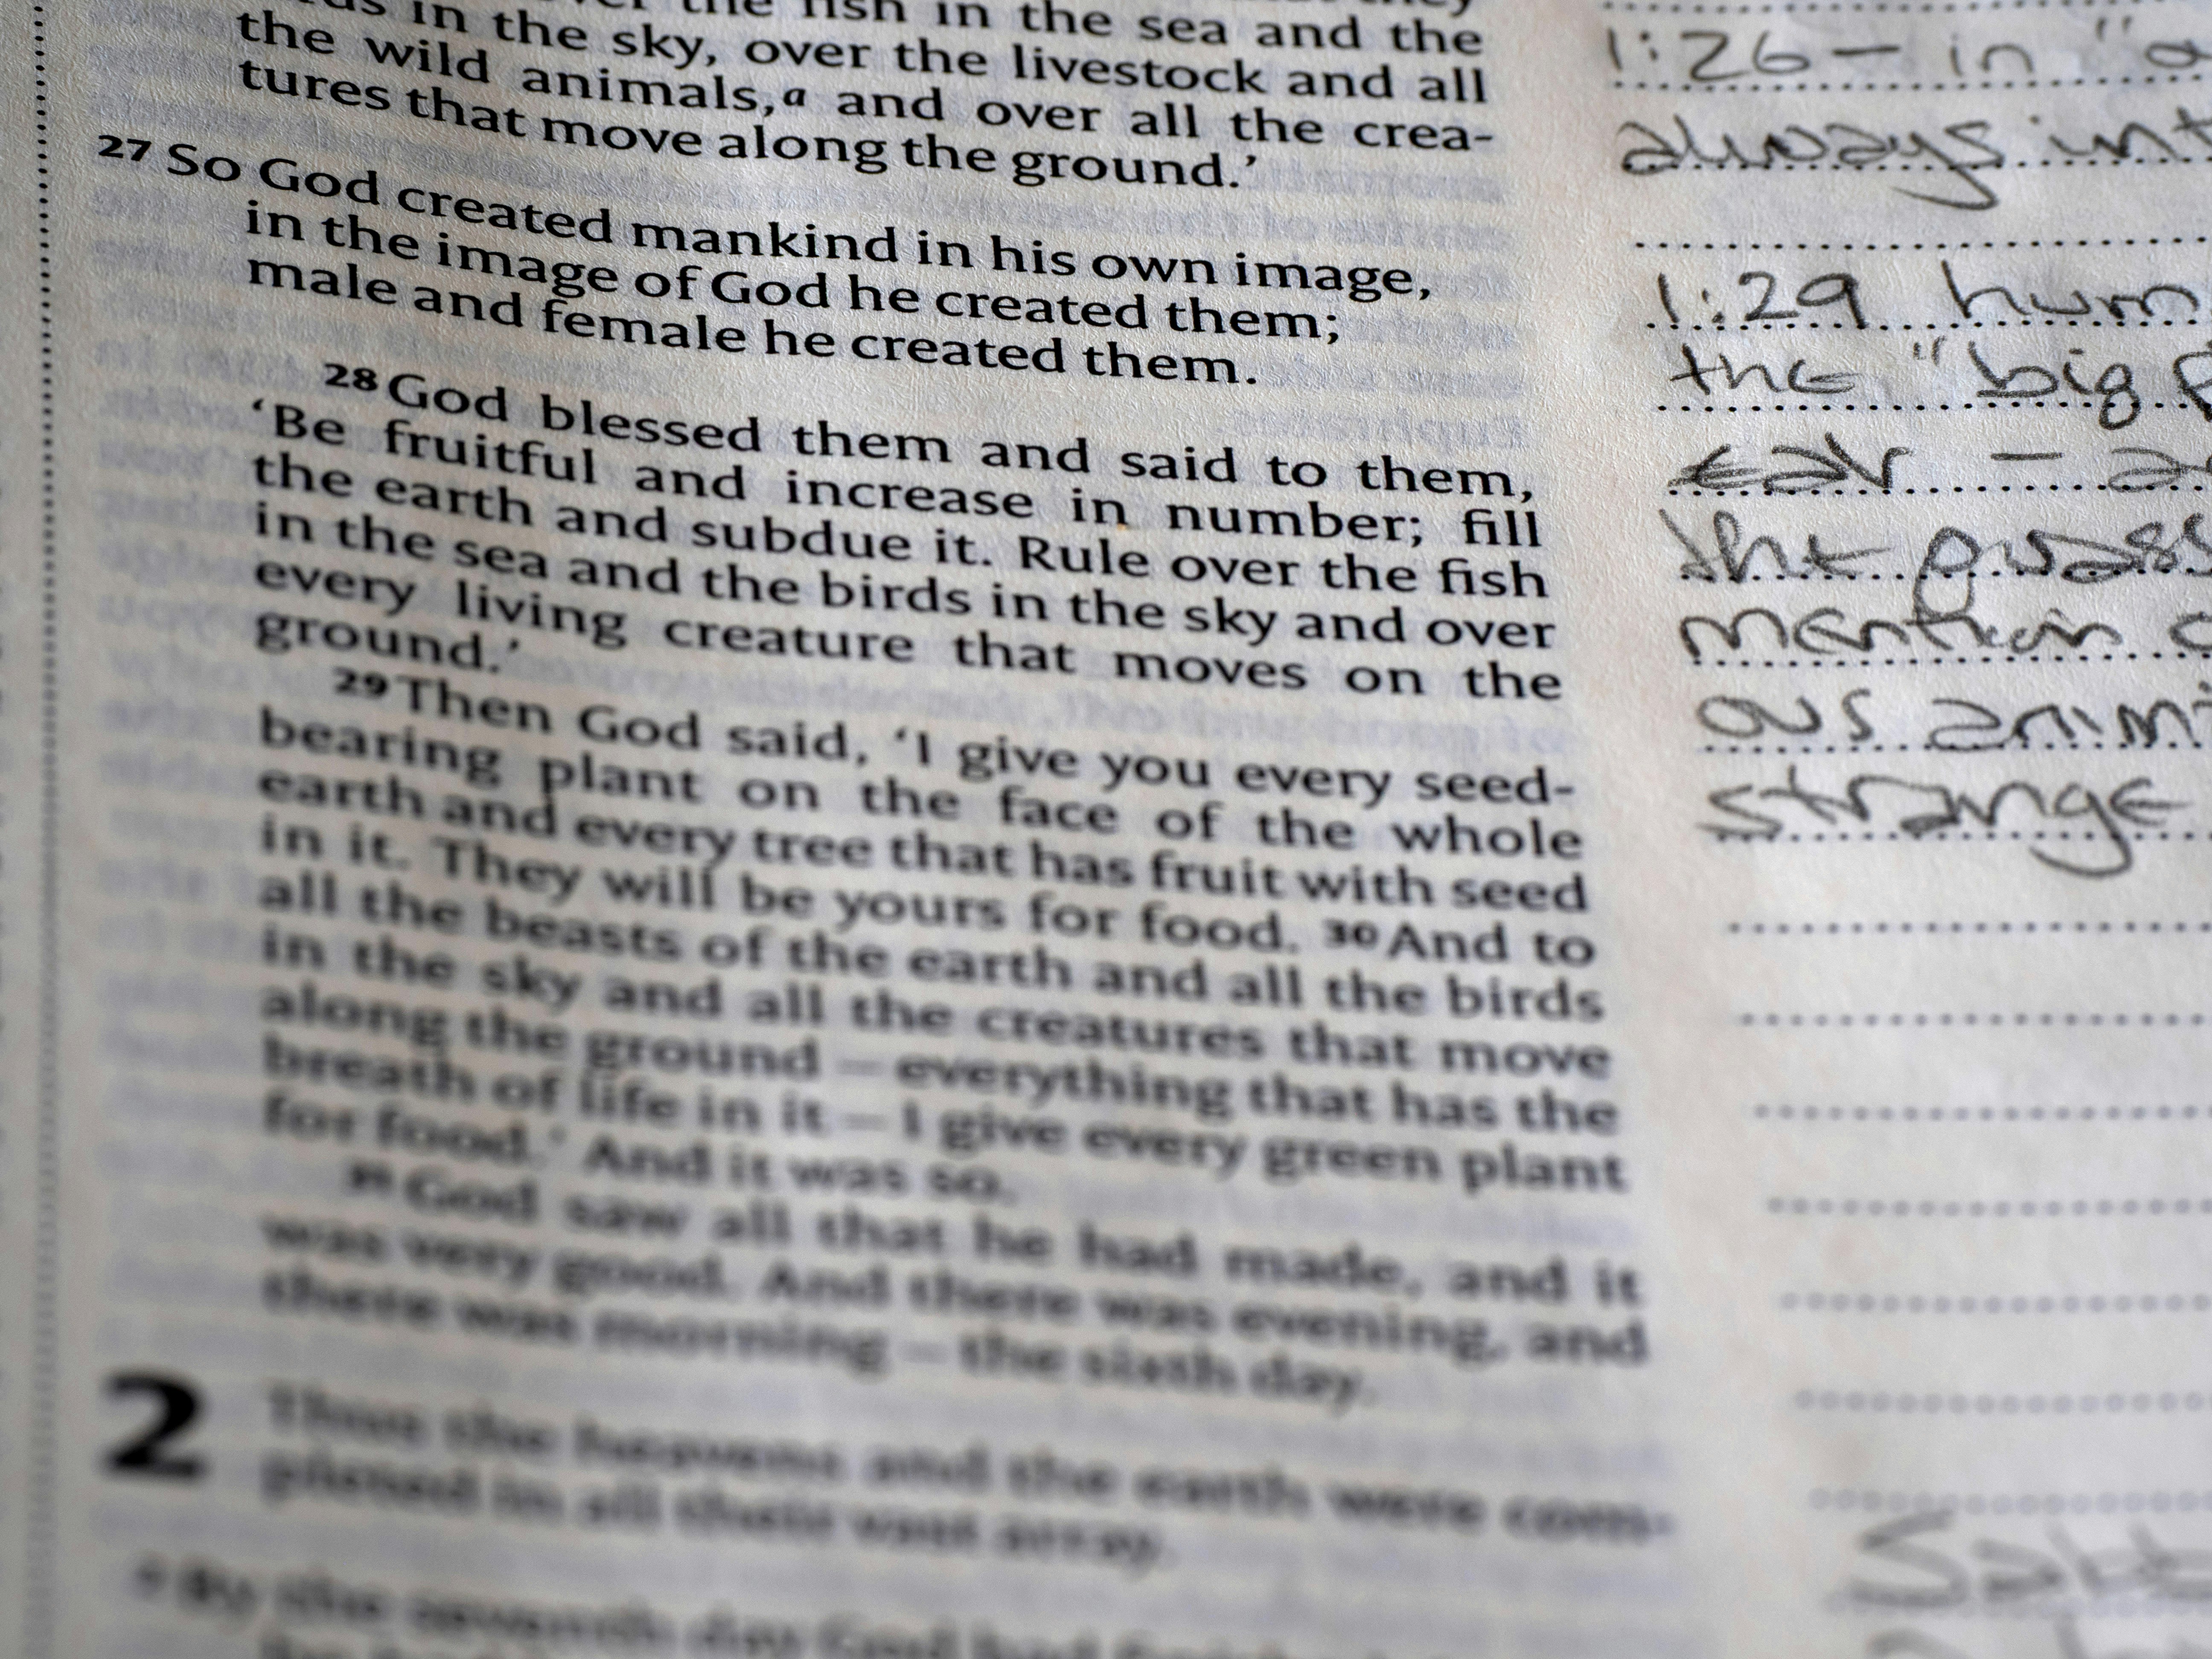 in the sky, over the fish in the sea and the
the wild animals,a and over all the crea-
tures that move along the ground.'
27 So God created mankind in his own image,
in the image of God he created them;
male and female he created them.
28 God blessed them and said to them,
'Be fruitful and increase in number; fill
the earth and subdue it. Rule over the fish
in the sea and the birds in the sky and over
every living creature that moves on the
ground.'
29 Then God said, 'I give you every seed-
bearing plant on the face of the whole
earth and every tree that has fruit with seed
in it. They will be yours for food. 30 And to
all the beasts of the earth and all the birds
in the sky and all the creatures that move
along the ground – everything that has the
breath of life in it – I give every green plant
for food.' And it was so.
31 God saw all that he had made, and it
was very good. And there was evening, and
there was morning – the sixth day.
2 Thus the heavens and the earth were com-
pleted in all their vast array.
By the seventh day God had
1:26 – in "
always
1:29
the "big
mention
ous
strange